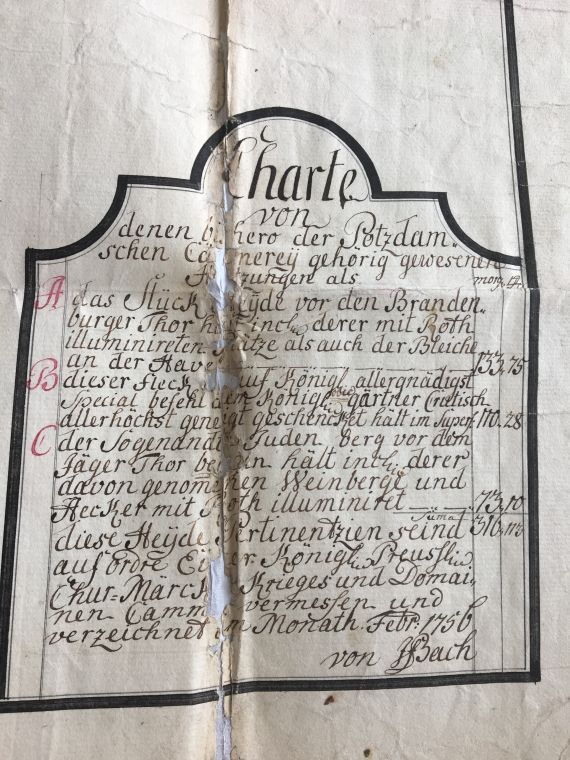 Charte
von
denen bishero der Potzdam„
schen Cämmerey gehörig gewesenen
Nutzungen als morg. ☐R.
A das Stück Heyde vor den Branden„
burger Thor hält incl. derer mit Roth
illuminireten Plätze als auch der Bleiche
an der Havel 133,75
B dieser Fleck auf Königl. allergnädigst
Special befehl dem Königl. ober gärtner Craetisch
allerhöchst geneigt geschencket hält im Super. 110.28
C der Sogenandten Juden Berg vor dem
Jäger Thor belegen hält incl. derer
davon genommenen Weinberge und
Aecker mit Roth illuminiret 73,10
Sumat 316,113
diese Heyde Pertinentzien seind
auf ordre Einer Königl. Preussl.
Chur=Märck Krieges und Domai„
nen Cammer vermessen und
verzeichnet im Monath. Febr. 1756
von Bach